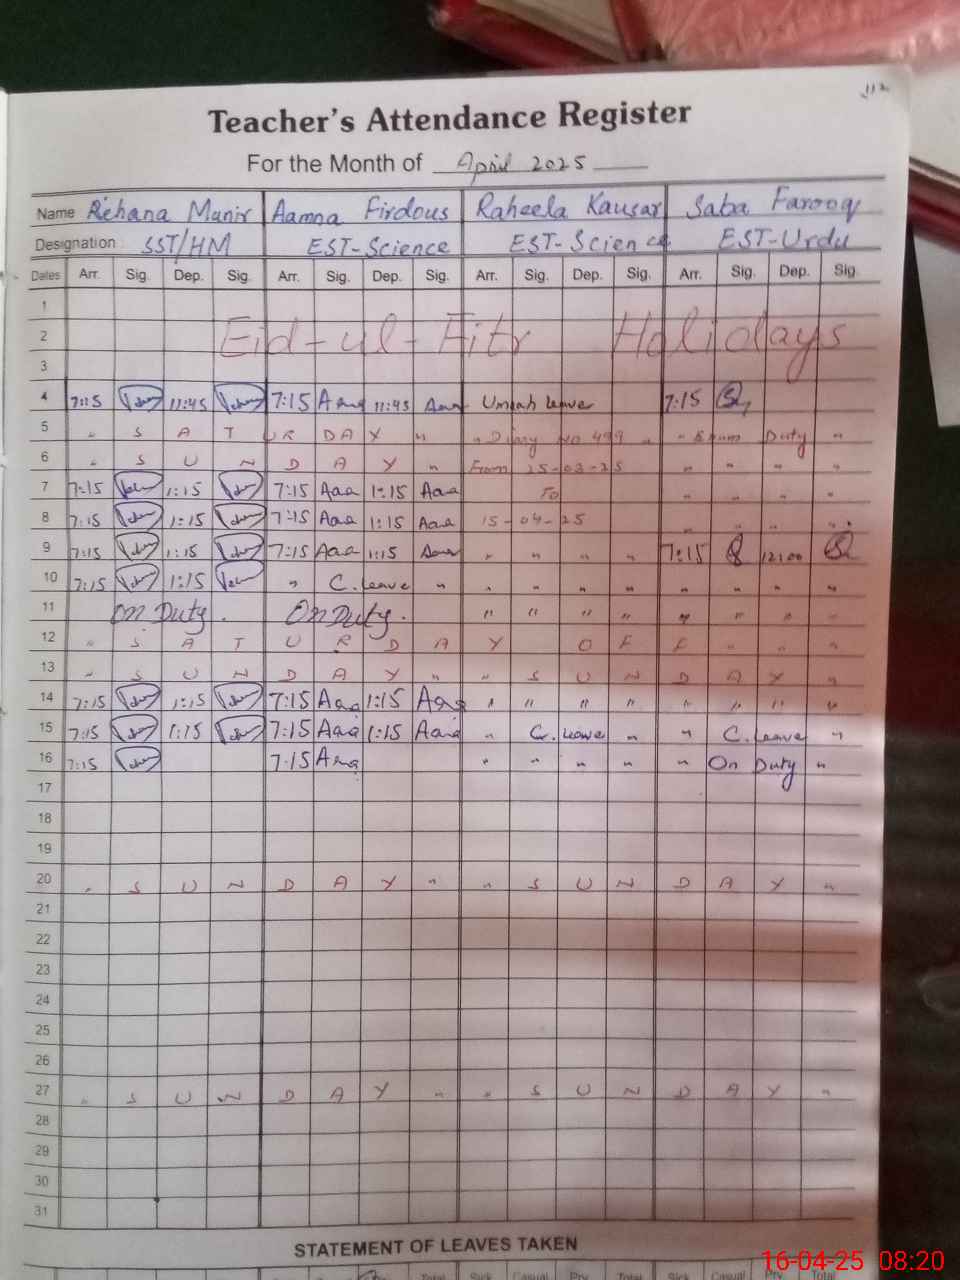 112
Teacher's Attendance Register
For the Month of April 2025
Name Rehana Munir Aamna Firdous Raheela Kausar Saba Farooq
Designation SST/HM EST-Science EST-Science EST-Urdu
Dates Arr. Sig. Dep. Sig. Arr. Sig. Dep. Sig. Arr. Sig. Dep. Sig. Arr. Sig. Dep. Sig.
1
2 Eid-ul-Fitr Holidays
3
4 7:15 11:45 7:15 Aaa 11:45 Aaa Umrah leave 7:15
5 " S A T U R D A Y " " Diary No 499 " " Exam Duty "
6 " S U N D A Y " From 25-03-25 " " " "
7 7:15 1:15 7:15 Aaa 1:15 Aaa To " " " "
8 7:15 1:15 7:15 Aaa 1:15 Aaa 15-04-25 " " " "
9 7:15 1:15 7:15 Aaa 1:15 Aaa " " " " 7:15 12:00
10 7:15 1:15 " C. leave " " " " " " " " "
11 On Duty. On Duty. " " " " " " " "
12 " S A T U R D A Y O F F " " "
13 " S U N D A Y " " S U N D A Y "
14 7:15 1:15 7:15 Aaa 1:15 Aaa " " " " " " " "
15 7:15 1:15 7:15 Aaa 1:15 Aaa " C. leave " " C. leave "
16 7:15 7:15 Aaa " " " " " On Duty "
17
18
19
20 " S U N D A Y " " S U N D A Y "
21
22
23
24
25
26
27 " S U N D A Y " " S U N D A Y "
28
29
30
31
STATEMENT OF LEAVES TAKEN
Total Sick Casual Prv. Total Sick Casual Prv. Total
16-04-25 08:20